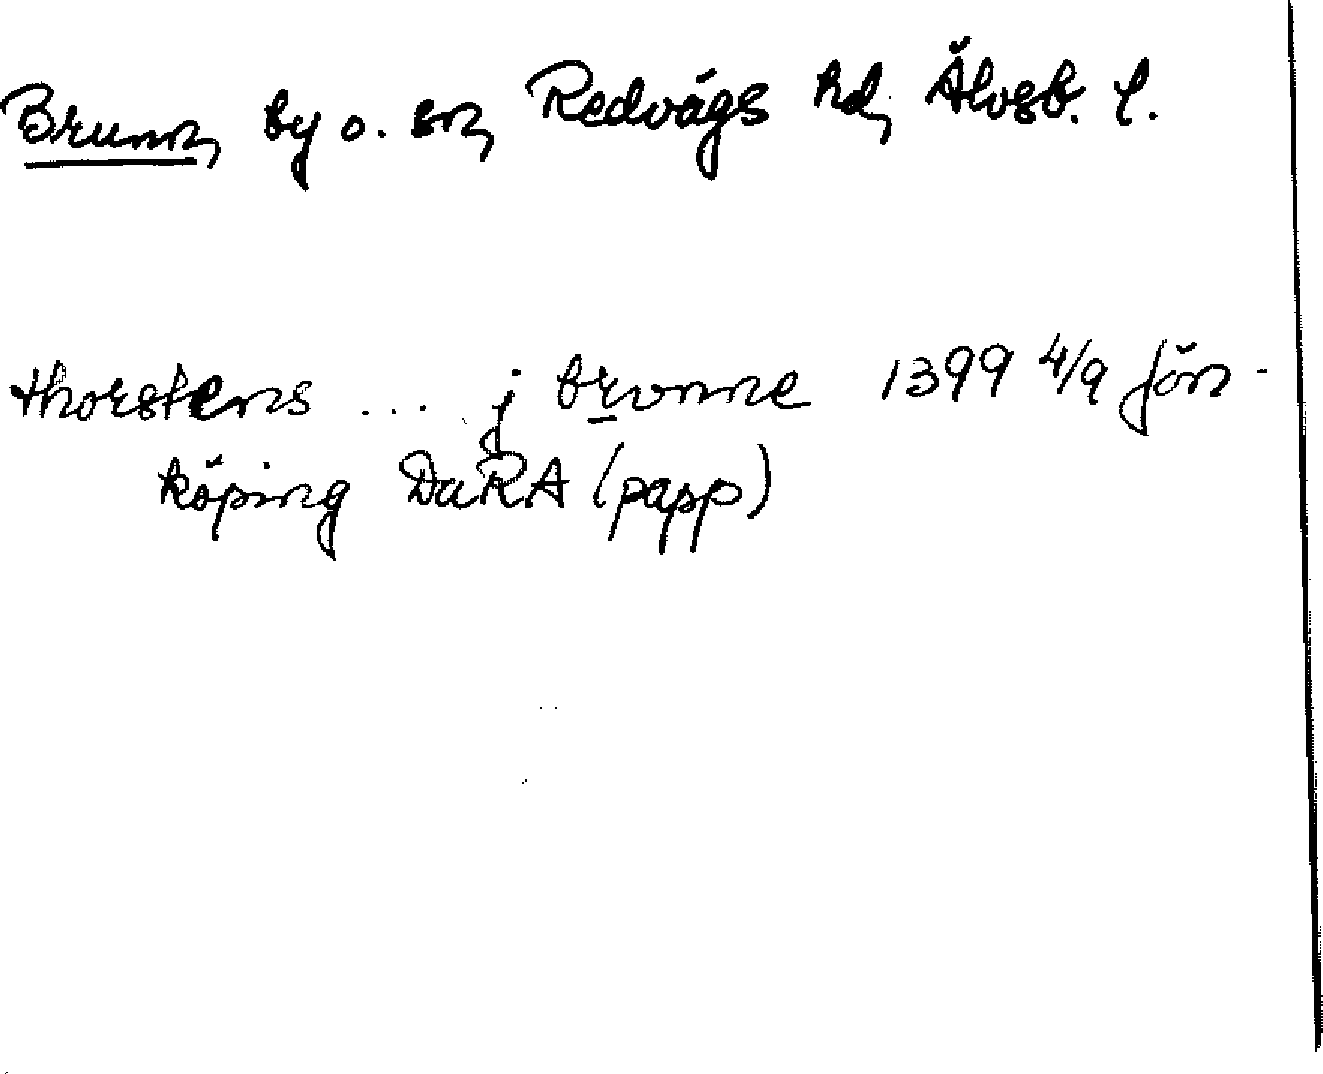 Brunn, by o. sn, Redvägs hd, Älvsb. l.
thorstens ... j bronne 1399 4/9 Jön-
köping DaRA (papp)